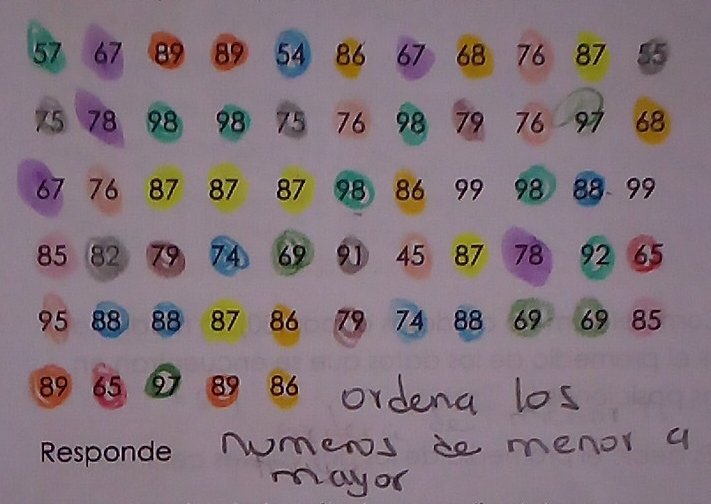 57 67 89 89 54 86 67 68 76 87 55
75 78 98 98 75 76 98 79 76 97 68
67 76 87 87 87 98 86 99 98 88 99
85 82 79 74 69 91 45 87 78 92 65
95 88 88 87 86 79 74 88 69 69 85
89 65 97 89 86 ordena los
Responde numeros de menor a
mayor